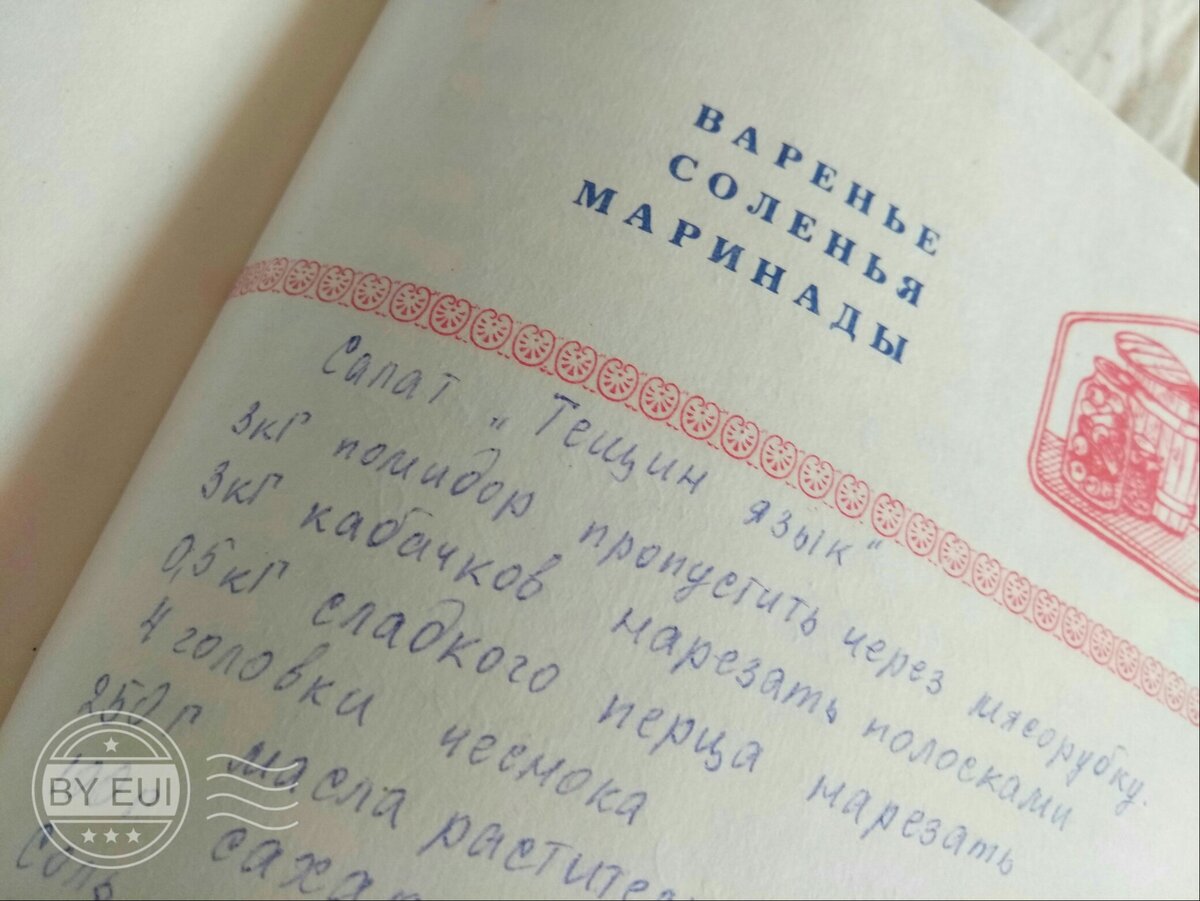 ВАРЕНЬЕ
СОЛЕНЬЯ
МАРИНАДЫ
Салат „Тещин язык“
3кг помидор пропустить через мясорубку.
3кг кабачков нарезать полосками
0,5кг сладкого перца нарезать
4 головки чеснока
250г масла
Соль
BY EUI